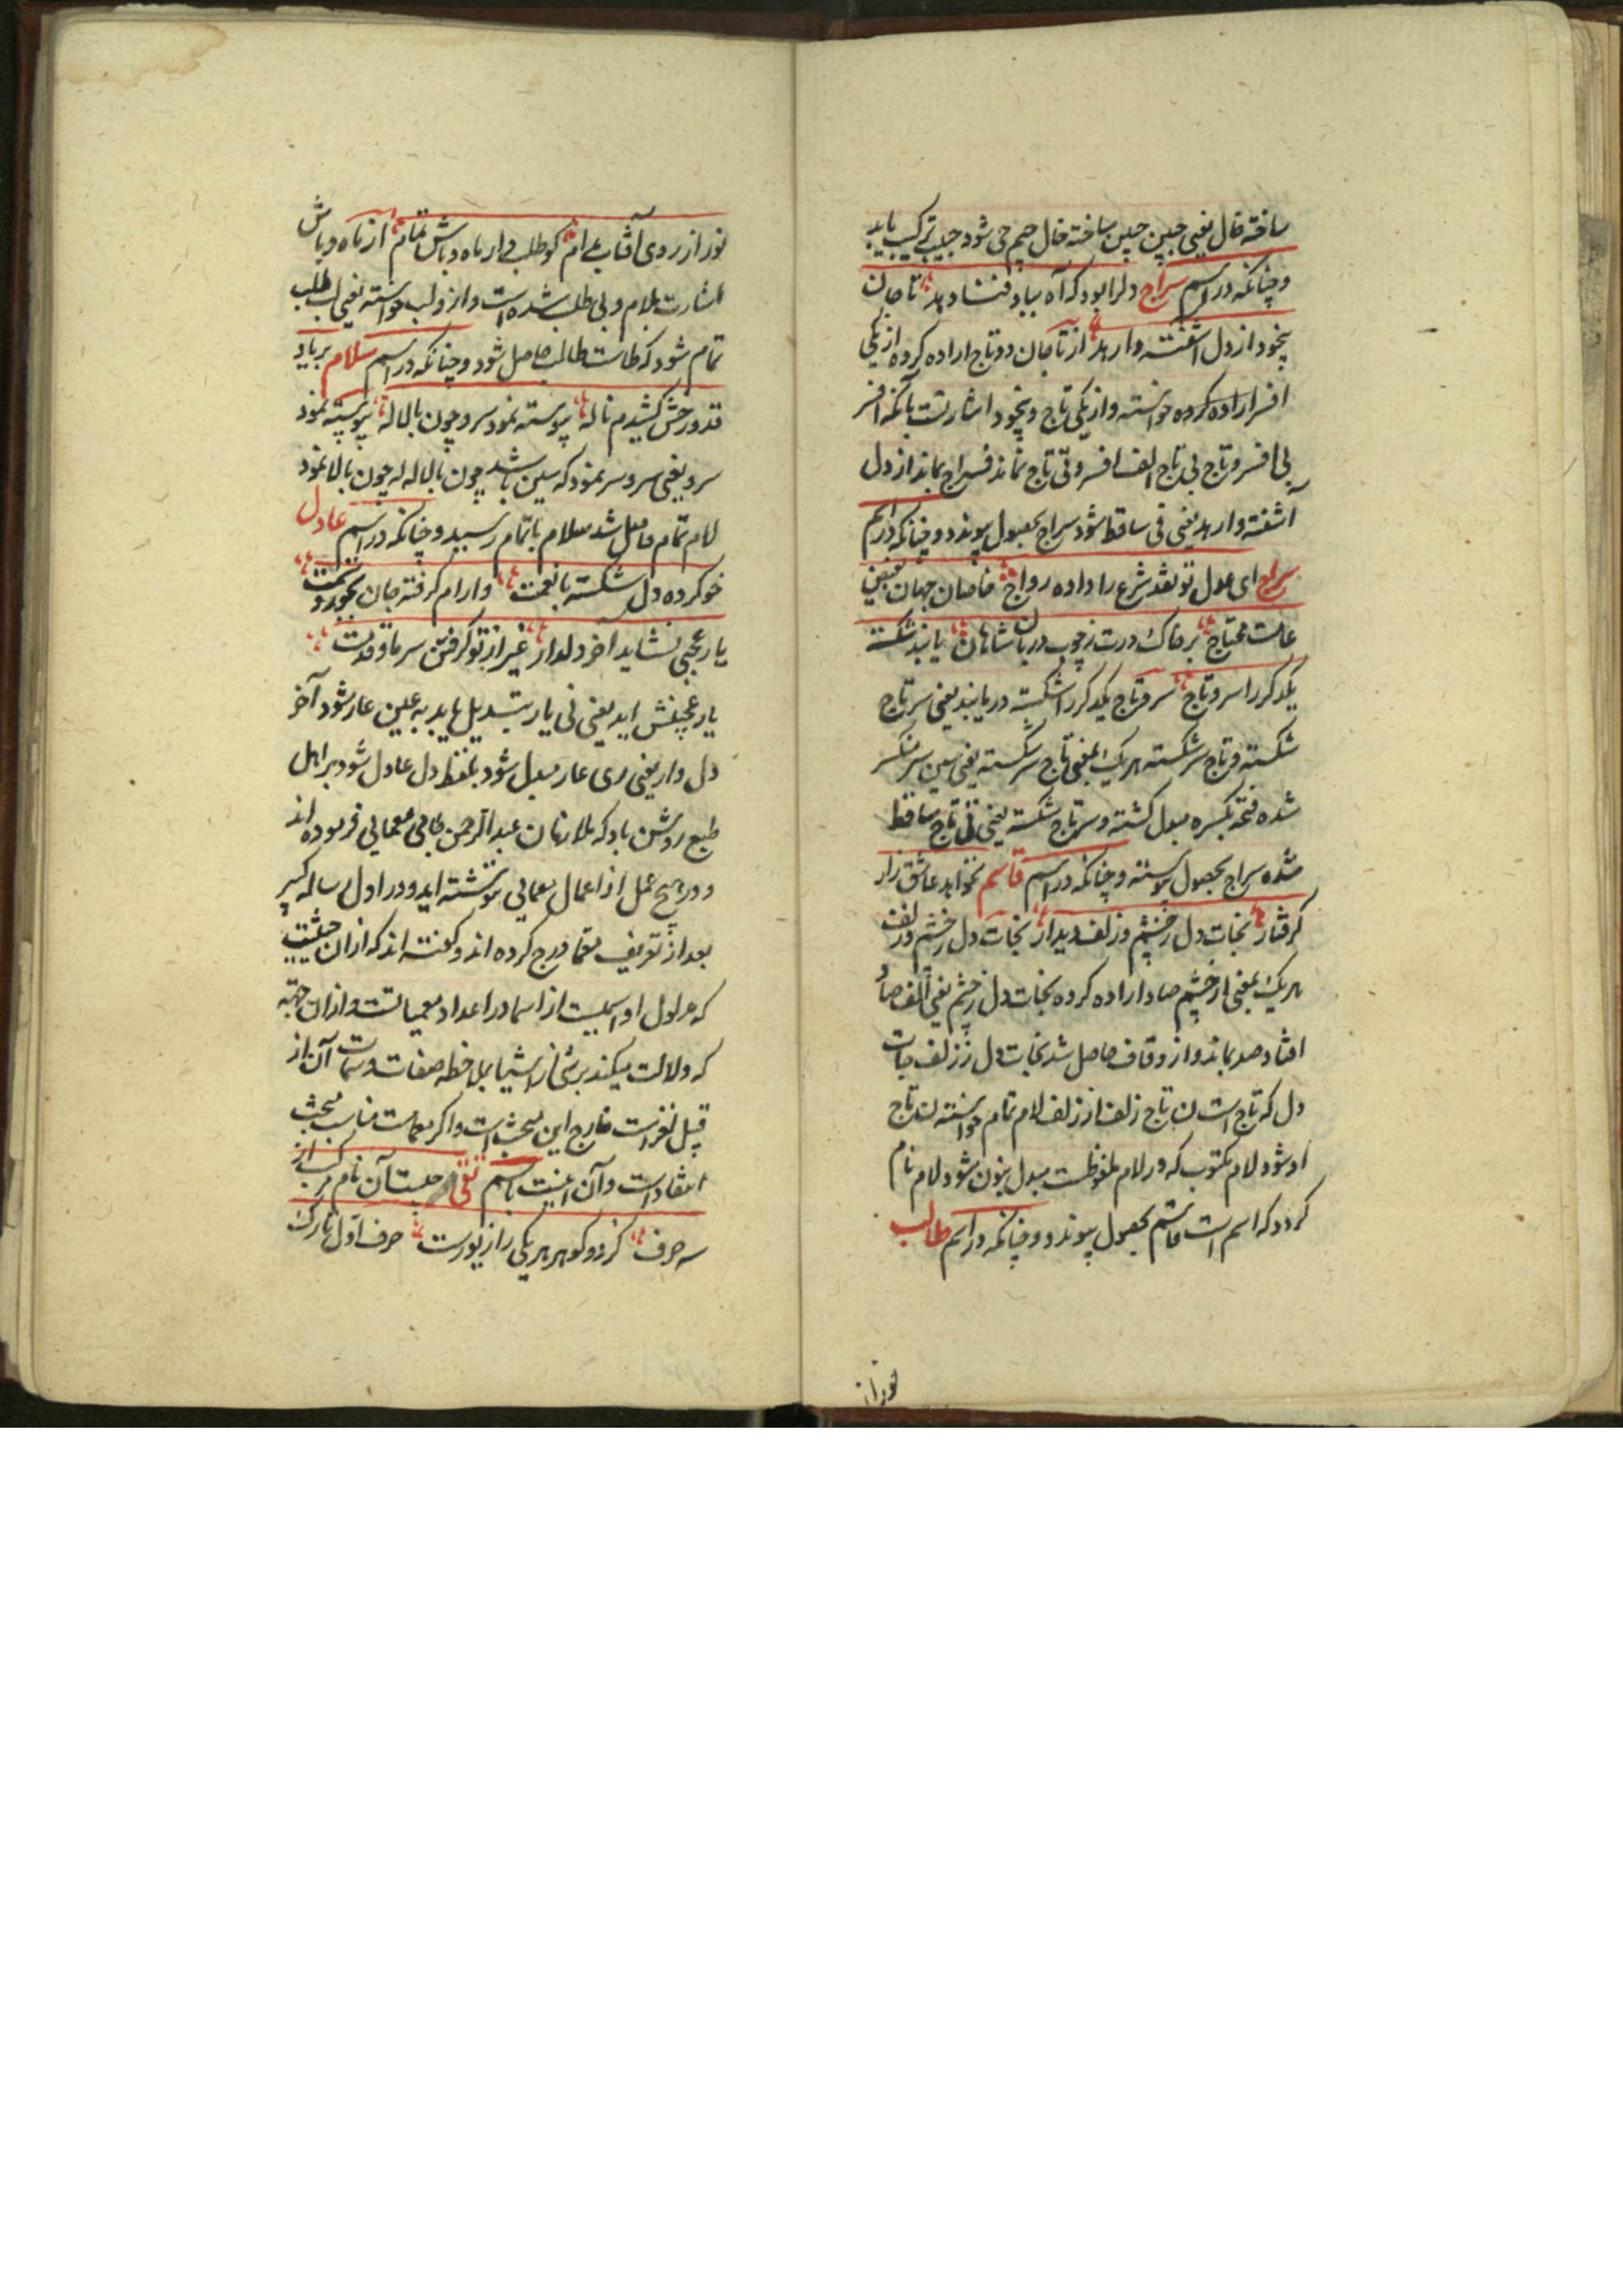 ساخته خال یعنی جبین چین ساخته خال جیم حی شود حبیب ترکیب یابد
و چنانکه در اسم سراج دلرا بود که آه بباد فنا دهد تا جان
بیخود از دل آشفته وارهد از تا جان دو تاج اراده کرده از یکی
افسر اراده کرده خواسته و از یکی تاج و بیخود اشارتست بآنکه افسر
بی افسر و تاج بی تاج الف افسر و تی تاج نماند فسراج بماند از دل
آشفته وارهد یعنی فی ساقط شود سراج بحصول پیوندد و چنانکه در اسم
سراج ای عدل تو نقد شرع را داده رواج خاصان جهان
عامت محتاج بر خاک درت ز چوب دربان شاهان یابند شکسته
یکدگر را سر و تاج سر و تاج یکدگر را شکسته دریابند یعنی سر تاج
شکسته و تاج سر شکسته هر یک بمعنی تاج سر شکسته یعنی سین سر منکسر
شده فتحه بکسره مبدل گشته و سر تاج شکسته یعنی تی تاج ساقط
شده سراج بحصول پیوسته و چنانکه در اسم قاسم نخواهد عاشق زار
گرفتار نجات دل ز چشم و زلف دیدار نجات دل ز چشم و زلف
هر یک بمعنی از چشم صاد اراده کرده نجات دل ز چشم یعنی الف صاد
افتاد صد بماند و از و قاف حاصل شد نجات دل ز زلف جات
دل که تاج است ن تاج زلف از زلف لام تمام خواسته لن تاج
او شود لام مکتوب که در لام ملفوظست مبدل بنون شود لام نام
گردد که اسم است قاسم بحصول پیوندد و چنانکه در اسم طالب
نور از
نور از روی آفتاب عالم کو طلب دار ماه و باش تمام از ماه و باش
اشارت بلام و بی طلب شده است و از و لب خواسته یعنی لب طلب
تمام شود که طاست طالب حاصل شود و چنانکه در اسم سلام بر یاد
قد و رخش کشیدم ناله پیوسته نمود سرو چون با لاله پیوسته نمود
سرو یعنی سر و سر نمود که سین باشد چون با لاله له چون بالا نمود
لام تمام حاصل شد سلام باتمام رسید و چنانکه در اسم عادل
خو کرده دل شکسته با نعمت و آرام گرفته جان
یار عجبی نشاید آخر دلدار غیر از تو گرفتن سر ما و قدمت
یار عجبی نشاید یعنی یی یار تبدیل یابد به عین عار شود آخر
دل دار یعنی ری عار مبدل شود بلفظ دل عادل شود بر اهل
طبع روشن باد که ملا زمان عبدالرحمن جامی معمایی فرموده اند
و در هیچ عمل از اعمال معمایی ننوشته اند و در اول رساله کبیر
بعد از تعریف معما درج کرده اند و گفته اند که از ان حیثیت
که مدلول او اسمیست از اسما در اعداد معمیاتست و از ان جهة
که دلالت میکند بر شی از اشیا بملاحظه صفات و سمات آن از
قبیل لغز است خارج این مبحث است و اگر معماست مناسب مبحث
انتقاد است و آن اینست باسم تقی چیست آن نام مرکب از
سه حرف کز دو گوهر هر یکی را زیورست حرف اول تارک